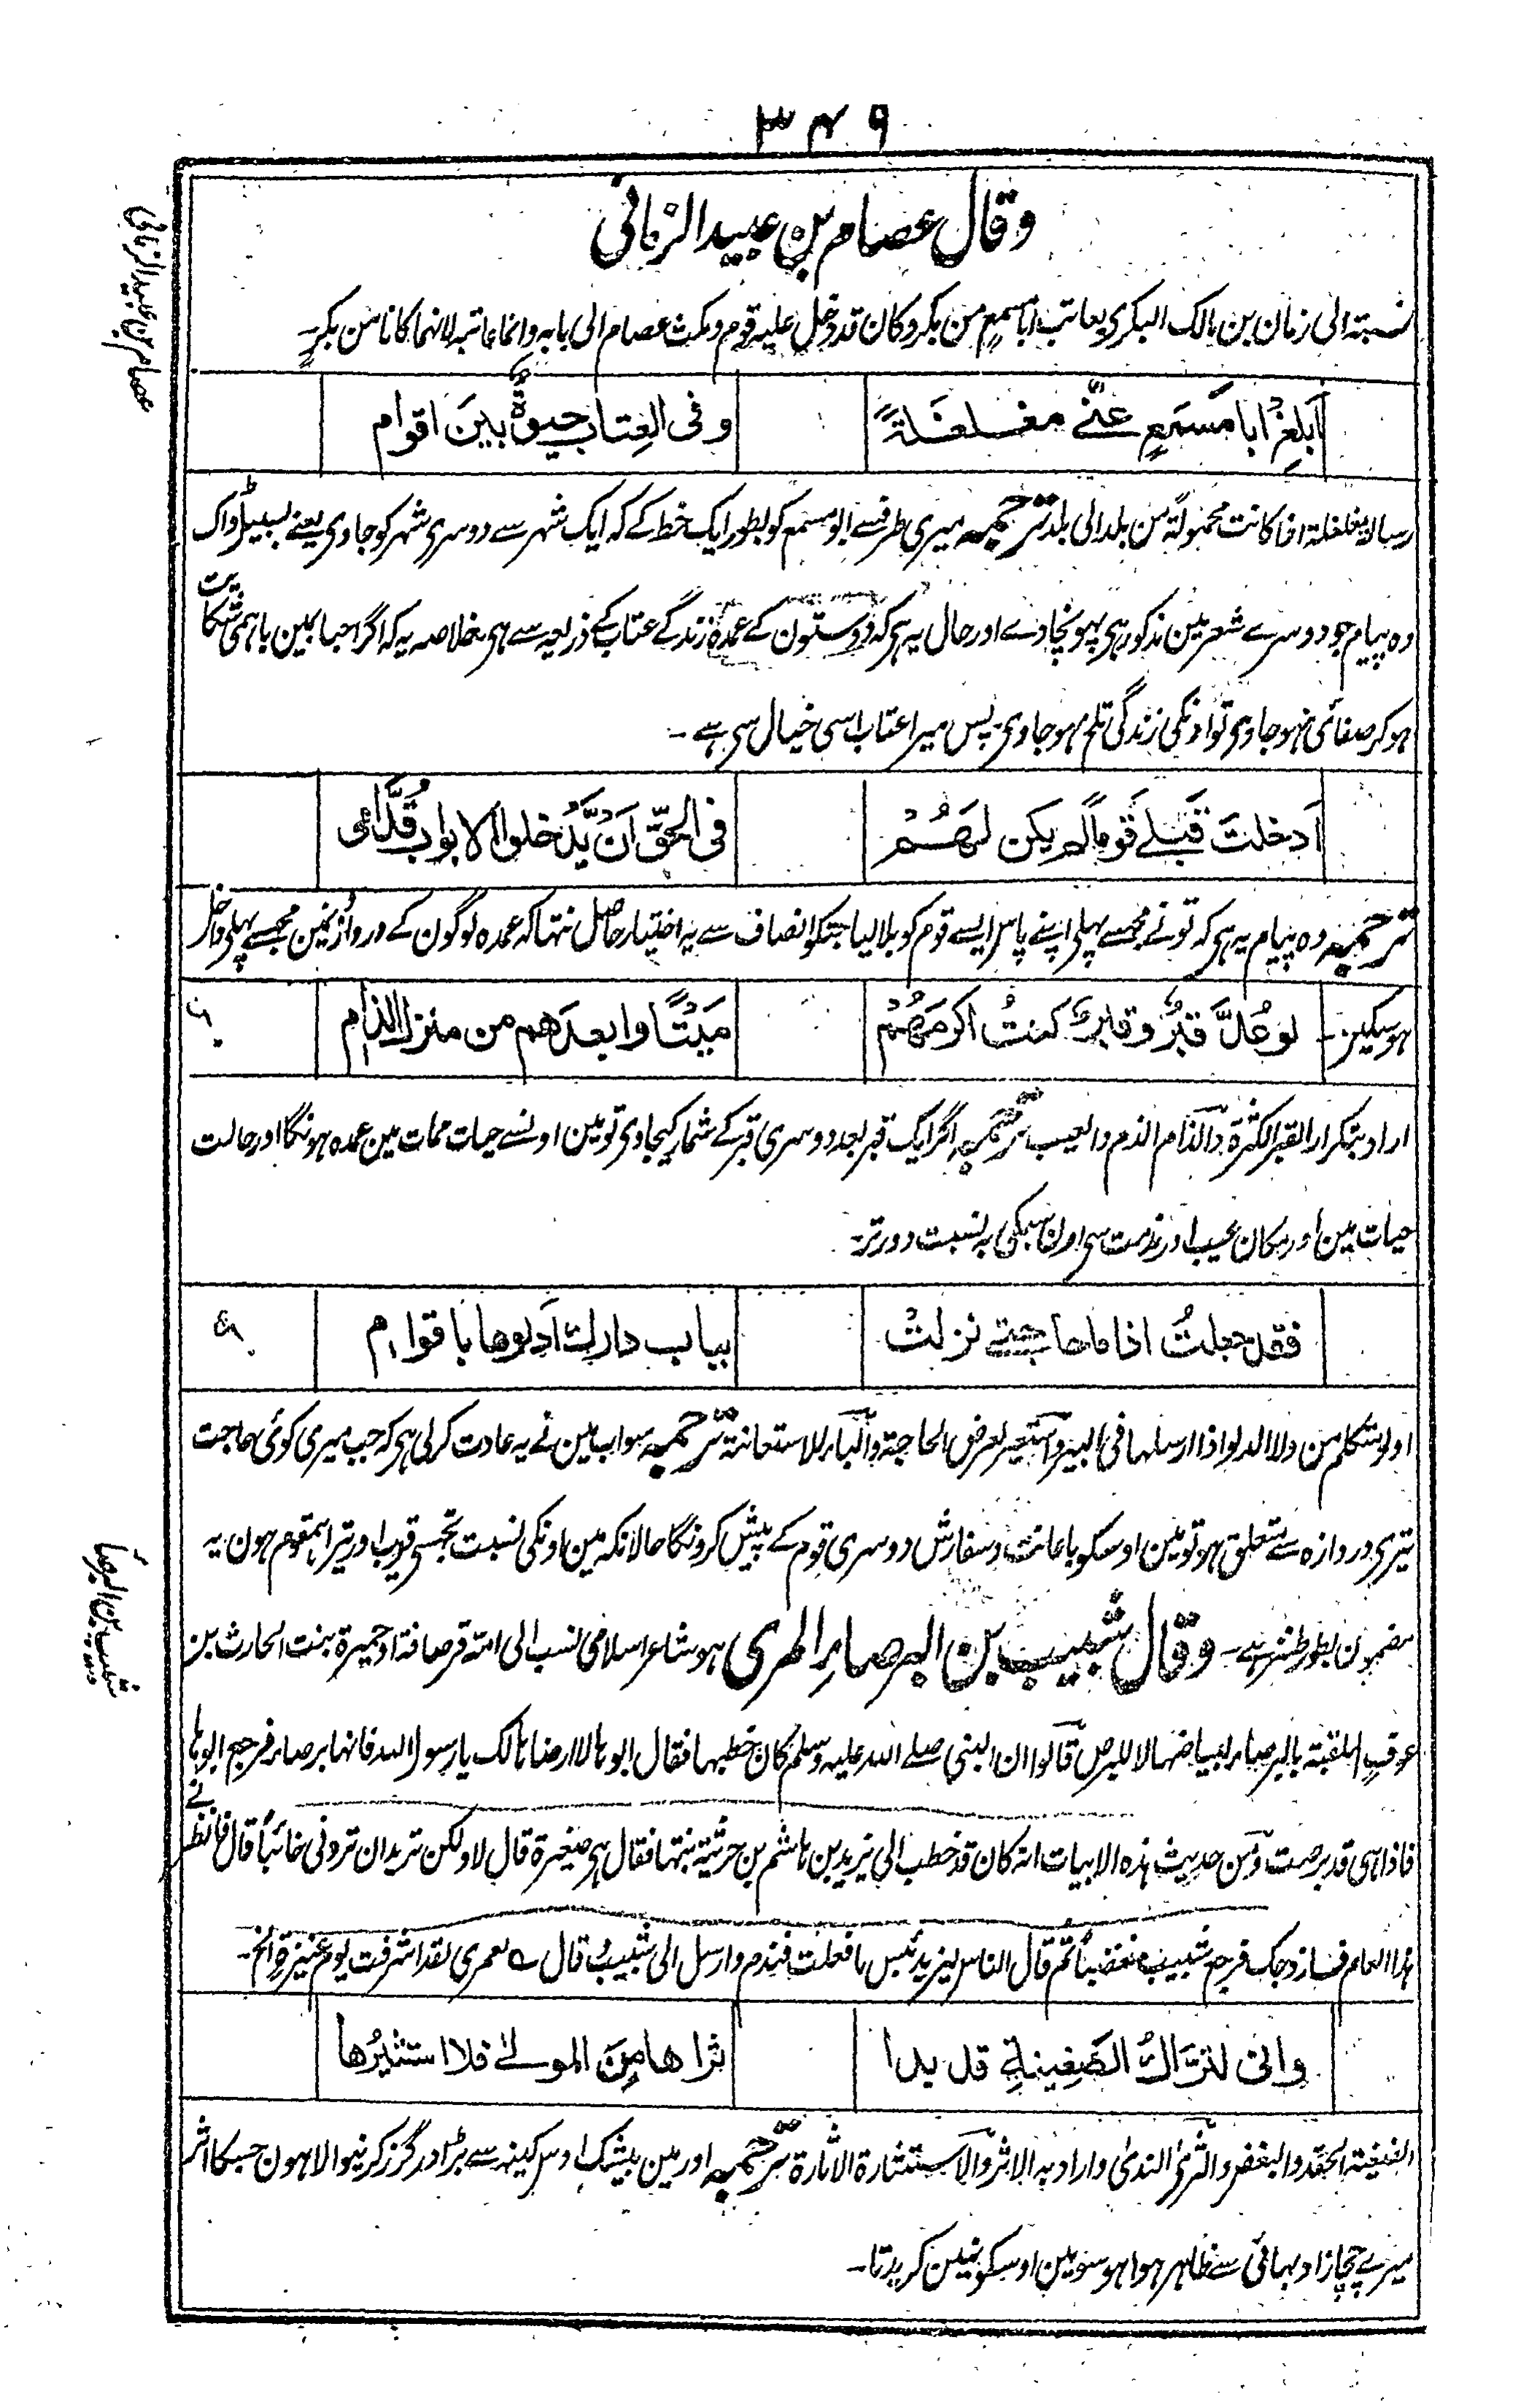 ۳۴۹
وقال عصام بن عبید الزمانی
نسبة الی زمان بن مالک البکری یعاتب ابا مسمع من بکر وکان قد دخل علیه قوم ومکث عصام الی بابه وانما عاتبه لانهما کانا من بکر۔
اَبلِغ ابا مَسمَعٍ عنّی مغلغلةً وفی العِتابِ حیٰوةٌ بینَ اقوام
رسالة مغلغلة اذا کانت محمولة من بلد الی بلد ترجمہ میری طرف سے ابو مسمع کو بطور ایک خط کے کہ ایک شہر سے دوسری شہر کو جاوی یعنے بسبیل ڈاک
وہ پیام جو دوسرے شعر مین مذکور ہی پہونچا دے اور حال یہ ہی کہ دوستون کے عمدہ زندگے عتاب کے ذریعہ سے ہی خلاصہ یہ کہ اگر احباب مین باہمی شکایت
ہو کر صفائی نہو جاوی تو اونکی زندگی تلخ ہو جاوی۔ پس میرا عتاب اسی خیال سی ہے ۔
اَدخلتَ قَبلے قَومًا لم یکن لهُمْ فی الحقّ اَنْ یَّدخلوا الابوابَ قُدَّامی
ترجمہ وہ پیام یہ ہی کہ تو نے مجھسے پہلی اپنے پاس ایسے قوم کو بلا لیا جنکو انصاف سے یہ اختیار حاصل نتھا کہ عمدہ لوگون کے دروازونمین مجھسے پہلی داخل
ہو سکین۔ لو عُدَّ قبرٌ وقبرٌ کنتُ اکرمَهُمْ مَیْتًا وابعدَهم من منزل الذام
اراد بتکرار القبر الکثرة والذام الذم والعیب ترجمہ اگر ایک قبر بعد دوسری قبر کے شمار کیجاوی تو مین اونسے حیات ممات مین عمدہ ہونگا اور حالت
حیات مین اور مکان عیب اور مذمت سی اون سبکی بہ نسبت دورتر۔
فقد جعلتُ اذا ما حاجتے نزلتْ بباب دارِك اَدلوها باقوام
ادلو متکلم من دلا الدلو اذا ارسلها فی البیر واستعیر لعرض الحاجة والباء للاستعانة ترجمہ سو اب مین نے یہ عادت کرلی ہی کہ جب میری کوئی حاجت
تیری دروازہ سے متعلق ہو تو مین اوسکو باعانت وسفارش دوسری قوم کے پیش کرونگا حالانکہ مین اونکی نسبت تجھسی قریب اور تیرا ہمقوم ہون یہ
مضمون بطور طنز ہے۔ وقال شبیب بن البرصاء المری ہو شاعر اسلامی نسب الی امه قرصافة او جمیرة بنت الحارث بن
عوف الملقبة بالبرصاء لبیاضها لا للبرص قالوا ان النبی صلے اللہ علیہ وسلم کان خطبها فقال ابوها لا ارضاها لک یا رسول اللہ فانها برصاء فرجع ابوها
فاذا هی قد برصت ومن حدیث هذه الابیات انه کان قد خطب الی یزید بن هاشم بن حرثیة بنتها فقال هی صغیرة قال لا ولکن ترید ان تردنی خائبا قال فانظرنے
هذا العام فسازوجک فرجع شبیب مغضبا ثم قال الناس لیزید بئس ما فعلت فندم وارسل الی شبیب وقال ؎ لعمری لقد اشرفت یوم عنیزة الخ۔
وانی لترّاكُ الضغینةِ قد بدا ثراها مِنَ المولےٰ فلا استثیرُها
الضغینة الحقد والبغض والثریٰ الندی واراد به الاثر والاستثارة الاثارة ترجمہ اور مین بیشک اوس کینہ سے بڑا درگزر کرنیوالا ہون جسکا اثر
میرے چچازاد بھائی سے ظاہر ہوا ہو سو مین اوسکو نہین کریدتا۔
عصام بن عبید الزمانی
شبیب بن البرصاء